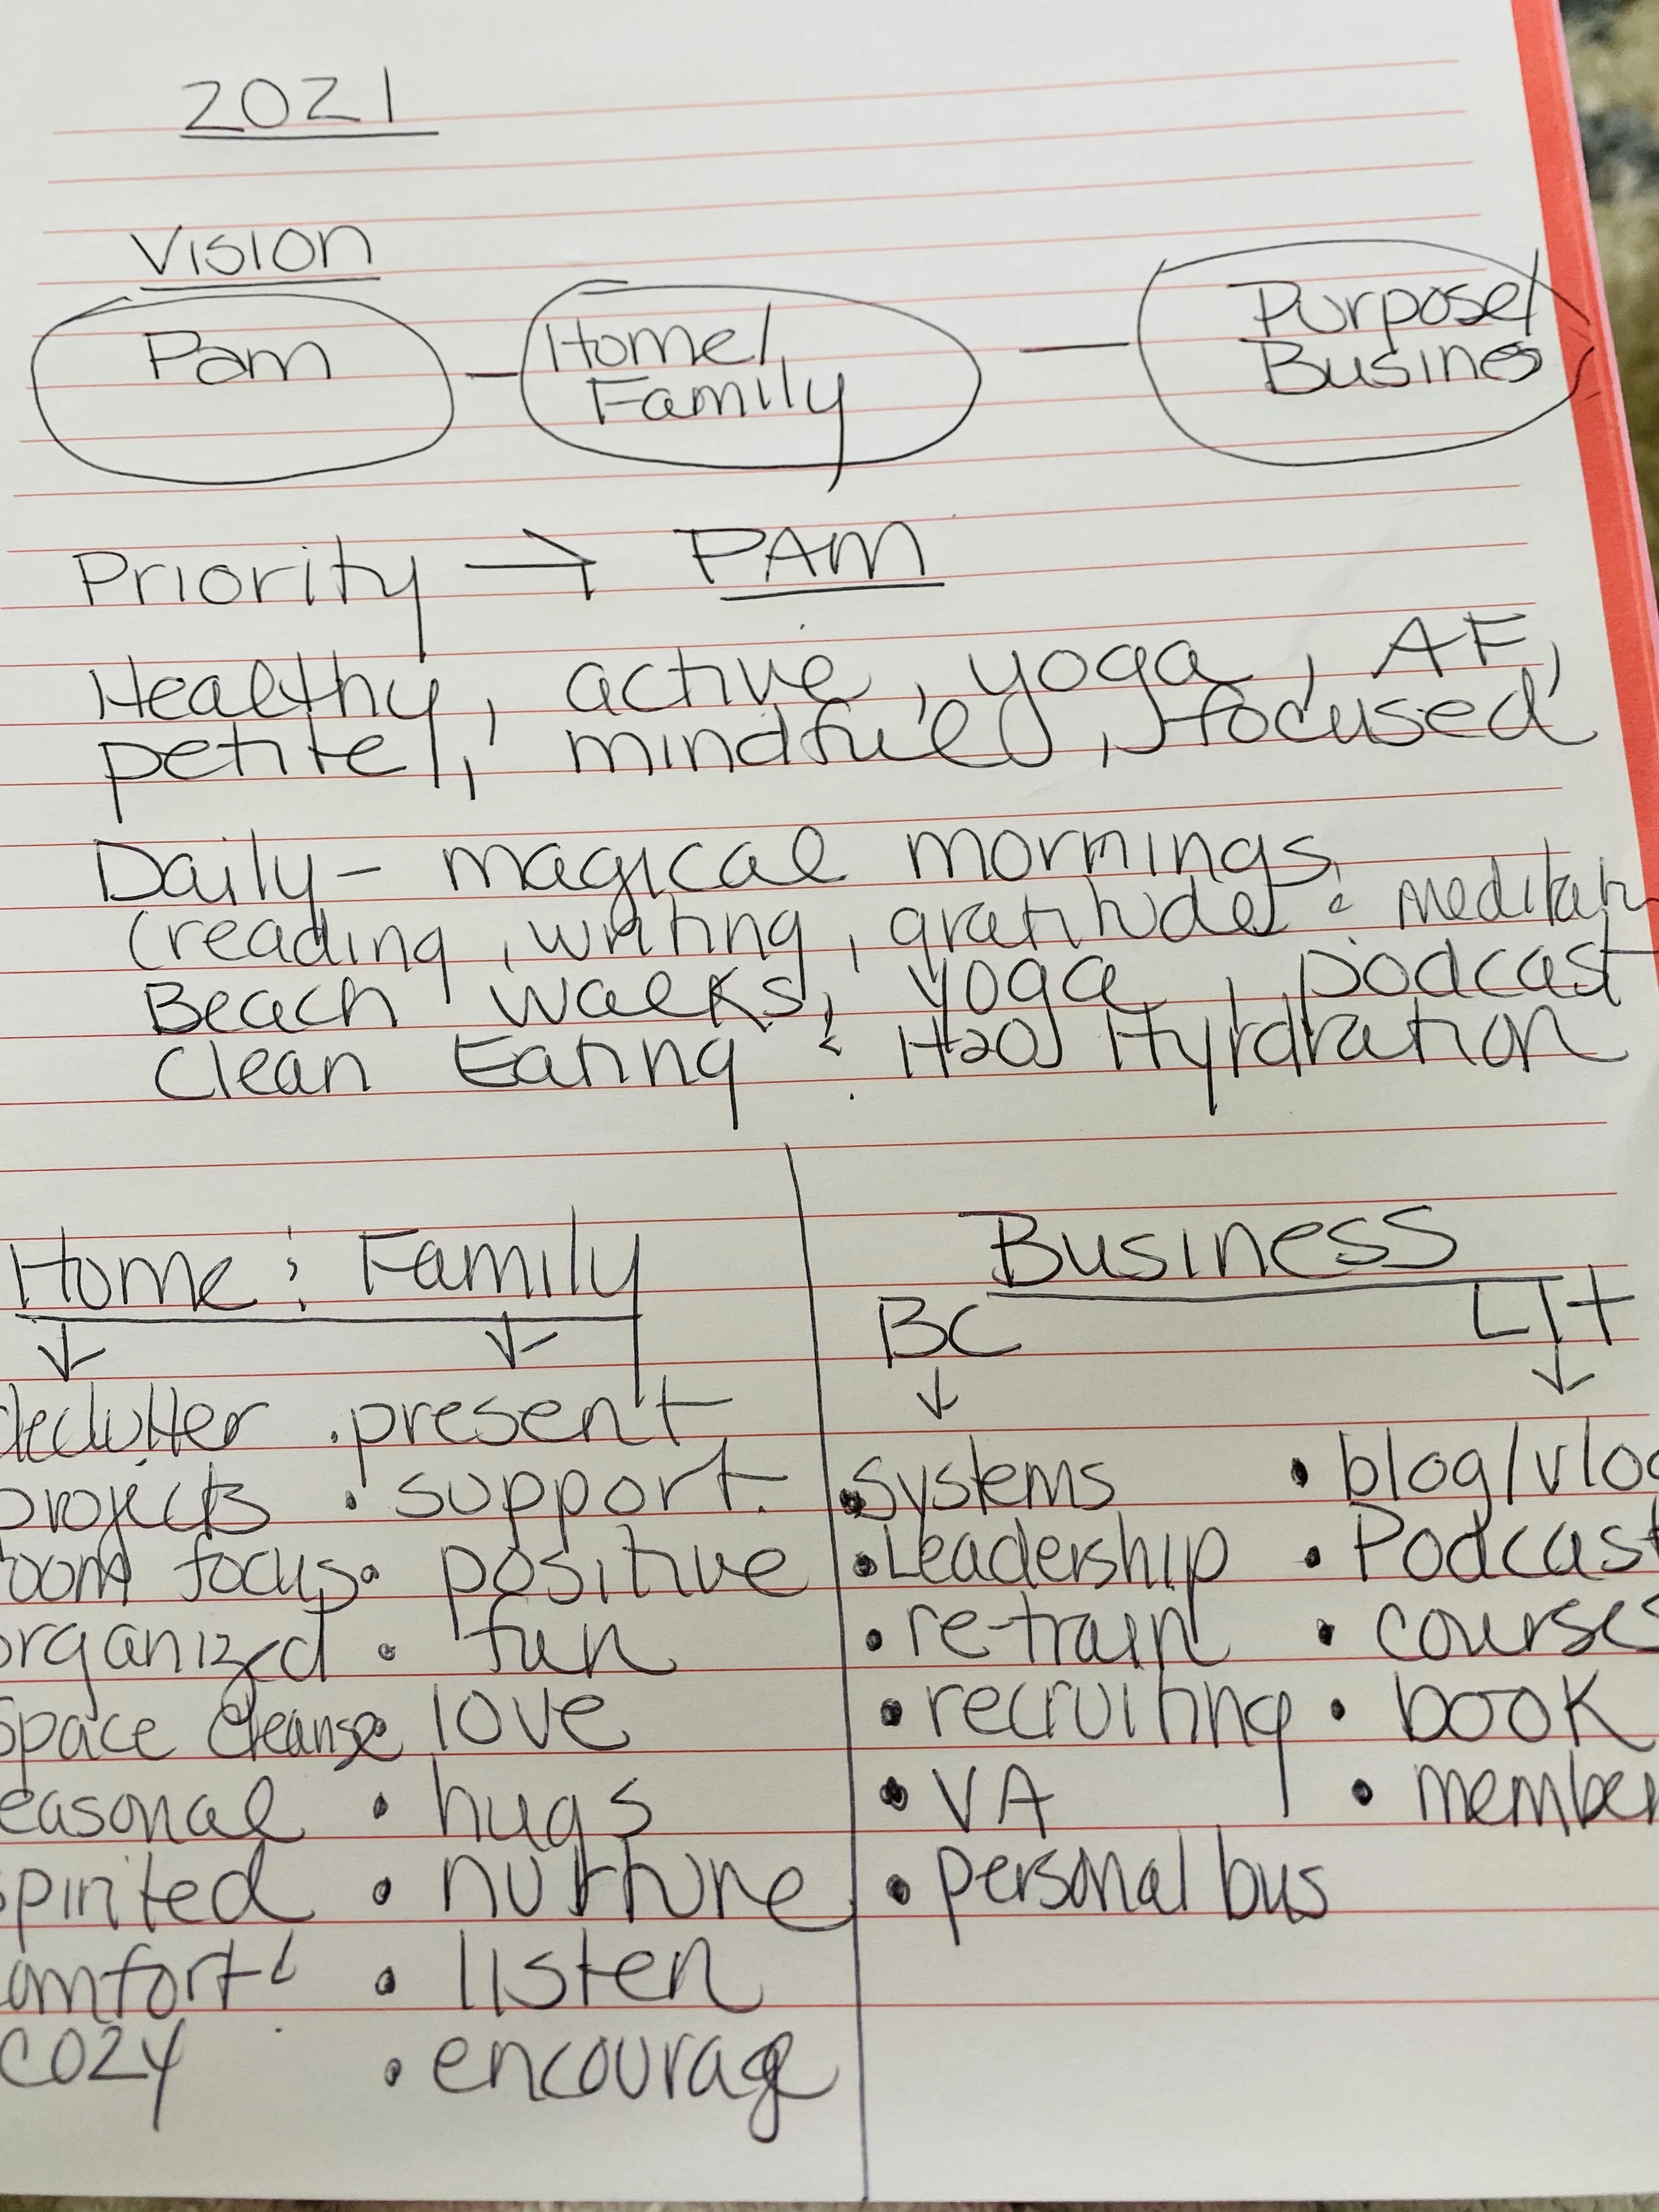 2021
Vision
Pam — Home/ Family — Purpose/ Busines
Priority → PAM
Healthy, active, yoga, AF,
petite, mindful, focused
Daily - magical mornings
(reading, writing, gratitude &
Beach walks, yoga, podcast
Clean Eating & H2O Hyrdration
Home & Family
Business
BC LIT
declutter · present
projects · support
room focus · positive
organized · fun
space cleanse · love
seasonal · hugs
spirited · nurture
comfort & · listen
cozy · encourage
· systems · blog/vlog
· Leadership · Podcast
· re-train · courses
· recruiting · book
· VA · member
· personal bus